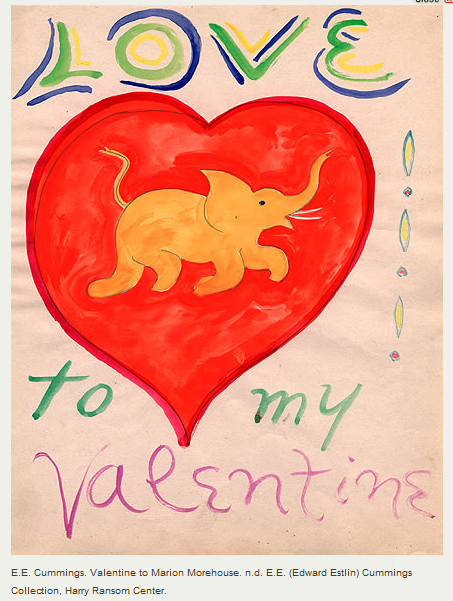 LOVE
!
!
!
to my
Valentine
E.E. Cummings. Valentine to Marion Morehouse. n.d. E.E. (Edward Estlin) Cummings
Collection, Harry Ransom Center.